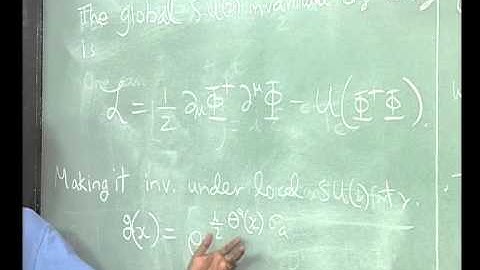 The global SU(2) invariant
is
L = 1/2 ∂μΦ† ∂^μΦ − U(Φ†Φ).
Making it inv. under local SU(2)
g(x) = e^{i/2 θ^a(x) σ_a}